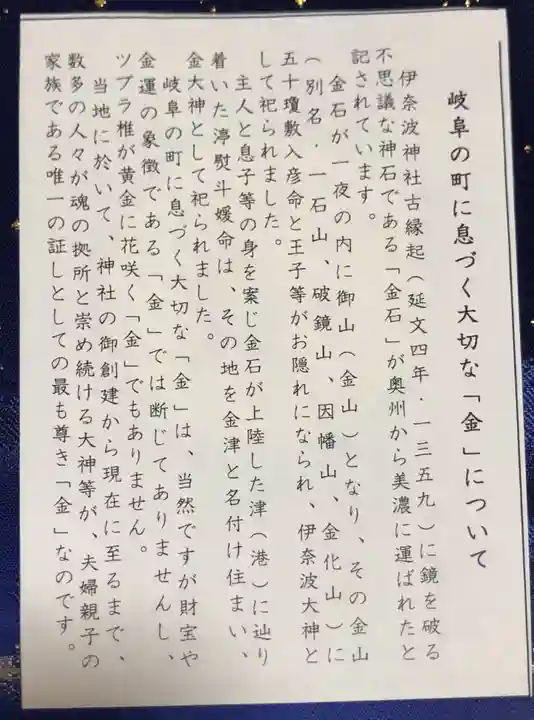 岐阜の町に息づく大切な「金」について
伊奈波神社古縁起(延文四年・一三五九)に鏡を破る
不思議な神石である「金石」が奥州から美濃に運ばれたと
記されています。
金石が一夜の内に御山(金山)となり、その金山
(別名・一石山、破鏡山、因幡山、金化山)に
五十瓊敷入彦命と王子等がお隠れになられ、伊奈波大神と
して祀られました。
主人と息子等の身を案じ金石が上陸した津(港)に辿り
着いた渟熨斗媛命は、その地を金津と名付け住まい、
金大神として祀られました。
岐阜の町に息づく大切な「金」は、当然ですが財宝や
金運の象徴である「金」では断じてありませんし、
ツブラ椎が黄金に花咲く「金」でもありません。
当地に於いて、神社の御創建から現在に至るまで、
数多の人々が魂の拠所と崇め続ける大神等が、夫婦親子の
家族である唯一の証しとしての最も尊き「金」なのです。